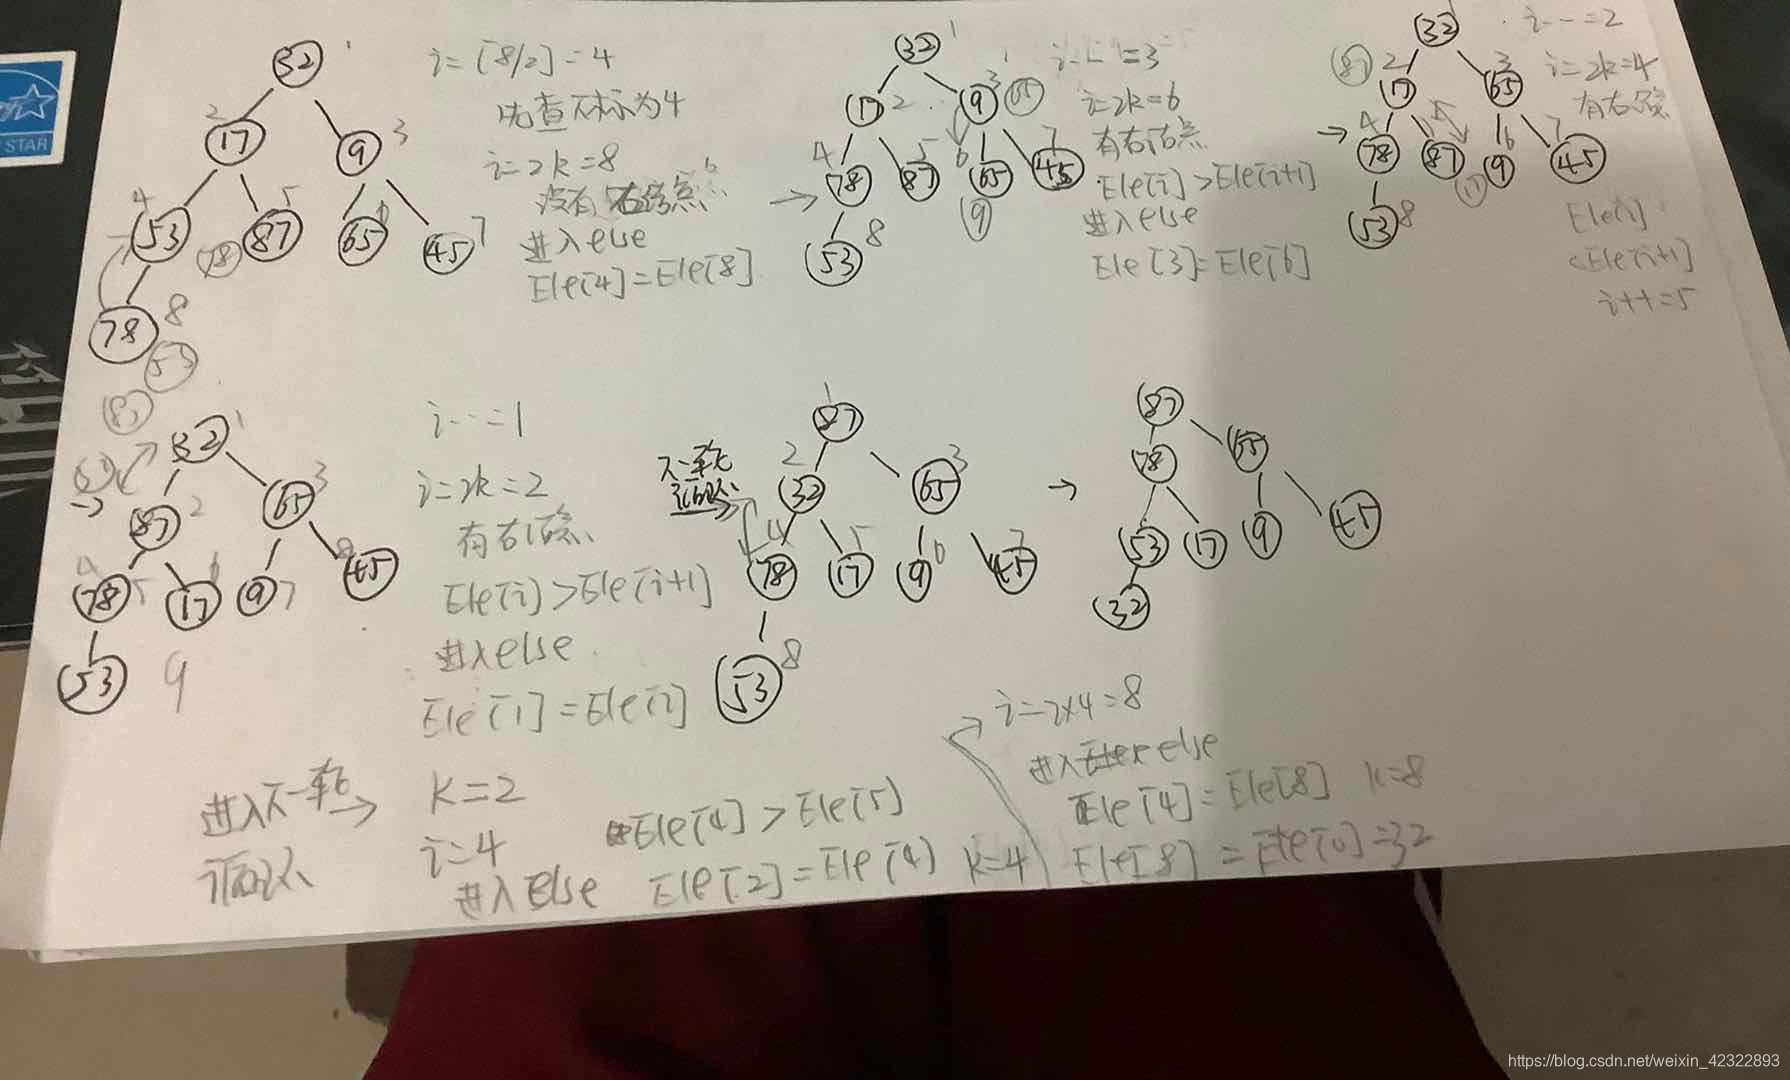 32 1
17 2
9 3
53 4
87 5
65 6
45 7
78 8
78
53
i=[8/2]=4
先查下标为4
i=2k=8
没有右孩点
进入else
Ele[4]=Ele[8]
32 1
17 2
9 3
65
78 4
87 5
65 6
45 7
9
53 8
i--=3
i=2k=6
有右孩点
Ele[i]>Ele[i+1]
进入else
Ele[3]=Ele[6]
32 1
87
17 2
65 3
78 4
87 5
17
9 6
45 7
53 8
i--=2
i=2k=4
有右孩
Ele[i]
<Ele[i+1]
i++=5
87
32 1
87 2
65 3
78
17
9 7
45
53 9
i--=1
i=2k=2
有右孩点
Ele[i]>Ele[i+1]
进入else
Ele[1]=Ele[2]
下一轮
确认
87 1
32 2
65 3
78 4
17 5
9 6
45 7
53 8
87
78
65
53
17
9
45
32
进入下一轮
确认
k=2
i=4
Ele[4]>Ele[5]
进入else Ele[2]=Ele[4] k=4
i=2x4=8
进入else
Ele[4]=Ele[8] k=8
Ele[8]=Ele[0]=32
STAR
https://blog.csdn.net/weixin_42322893